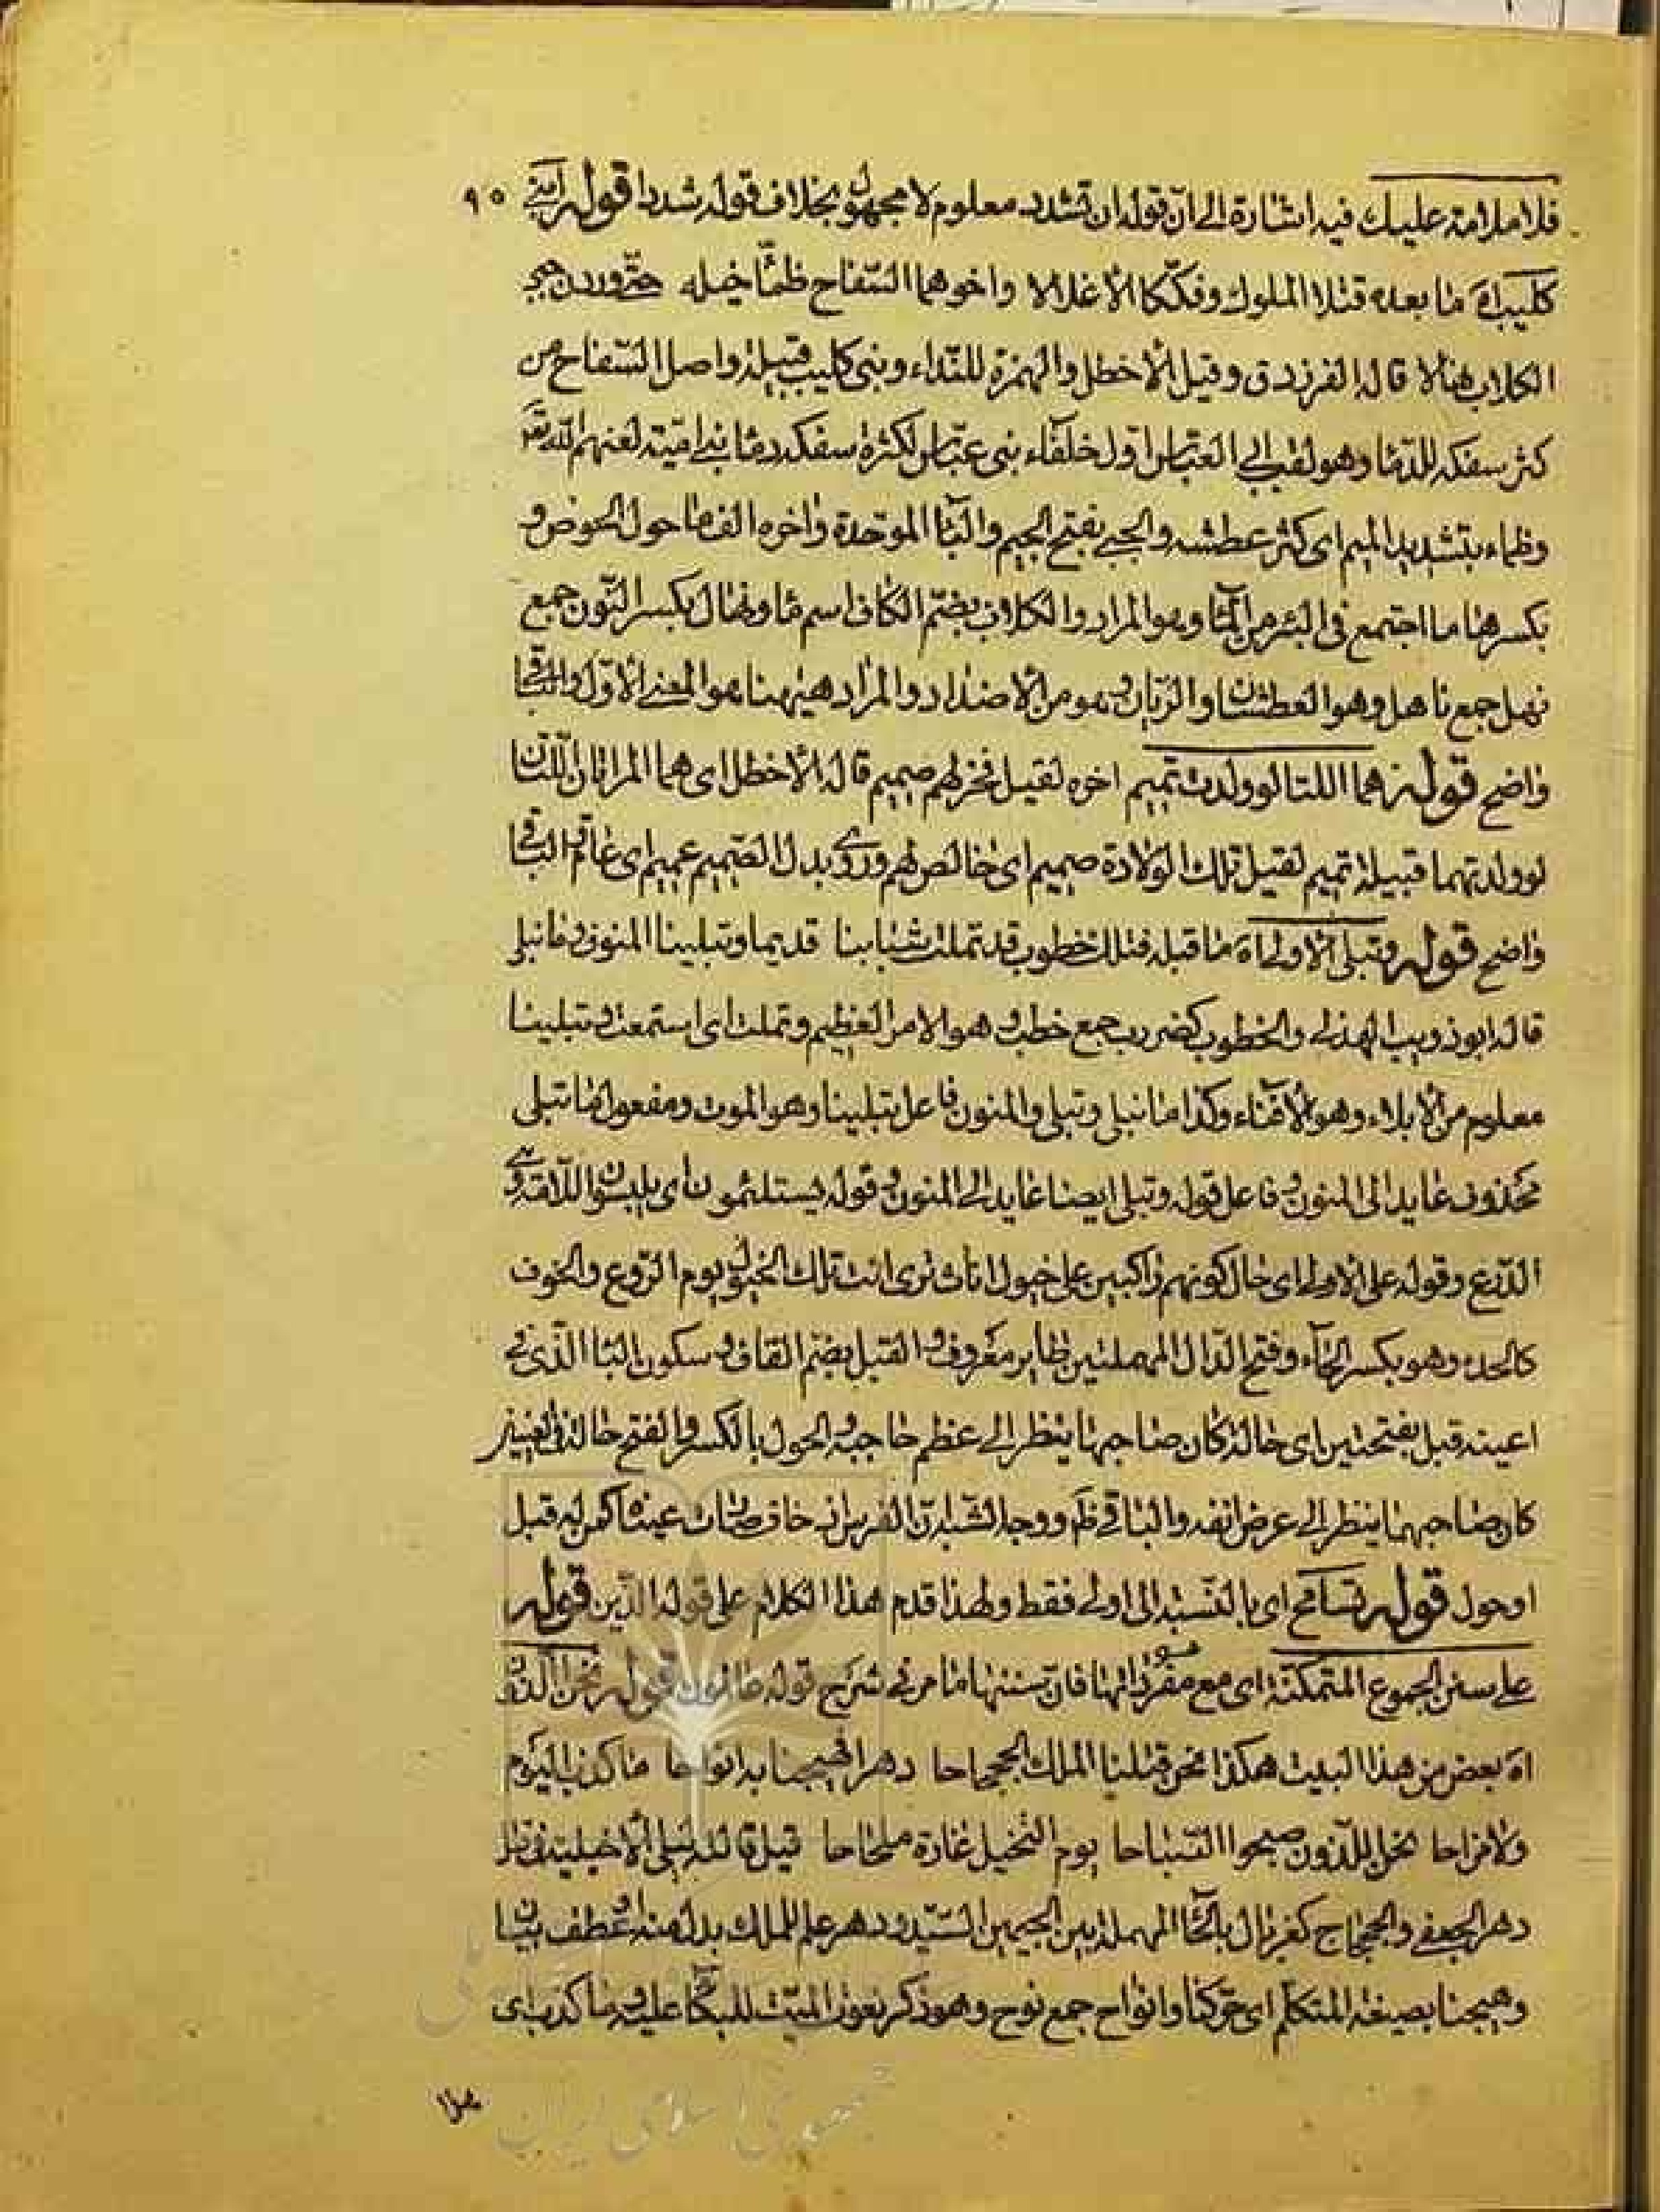 فلا ملامة عليك فيه اشارة الى ان قوله ان تشدد معلوم لا مجهول بخلاف قوله شددا قوله ابنى ٩٠
كليب اه ما بعده قتلا الملوك وفككا الاغلالا واخوهما السفاح ظمّا خيله حتى وردن جبى
الكلاب نهالا قاله الفرزدق وقيل الاخطل والهمزة للنداء وبنى كليب قبيلة واصل السفاح من
كثر سفكه للدما وهو لقب ابى العباس اول خلفاء بنى عباس لكثرة سفكه دما بنى امية لعنهم الله تعـ
وظماء بتشديد الميم اى كثر عطشه والجبى بفتح الجيم والبا الموحدة واخره الف ما حول الحوض و
بكسرها ما اجتمع فى البئر من الما وهو المراد والكلاب بضم الكاف اسم ما ونهال بكسر النون جمع
نهل جمع ناهل وهو العطشان والريان وهو من الاضداد والمراد هيهنا هو المعنى الاول والباقى
واضح قوله هما اللتا لو ولدت تميم اخره لقيل فخر لهم صميم قاله الاخطل اى هما المراتان اللتان
لو ولدتهما قبيلة تميم لقيل تلك الولادة صميم اى خالص لهم وروى بدل الصميم عميم اى عام والباقى
واضح قوله وتبلى الاولى اه ما قبله فتلك خطوب قد تملت شبابنا قديما وتبلينا المنون وما نبلى
قاله ابو ذويب الهذلى والخطوب كضروب جمع خطب وهو الامر العظيم وتملت اى استمعت وتبلينا
معلوم من الابلاء وهو الافناء وكذا ما نبلى وتبلى والمنون فاعل تبلينا وهو الموت ومفعول ما تبلى
محذوف عايد الى المنون وفاعل قوله وتبلى ايضا عايد الى المنون وقوله يستلئمون اى يلبسون اللامة وهى
الدرع وقوله على الاولى اى حال كونهم راكبين على خيول اناث ترى انت تلك الخيول يوم الروع والخوف
كالحدء وهو بكسر الحاء وفتح الدال المهملتين طاير معروف والقبل بضم القاف وسكون البا الذى فى
اعينه قبل بفتحتين اى حالة كان صاحبها ينظر الى عظم حاجبه والحول بالكسر والفتح حالة فى العين
كان صاحبهما ينظر الى عرض انفه والباقى ظ ووجه الشبه ان الفرس عينه كمن به قبل
او حول قوله تسامح اى بالنسبة الى اولى فقط ولهذا قدم هذا الكلام على قوله الذين قوله
على سنن الجموع المتمكنة اى مع مفرداتها فان سننها ما مر فى شرح قوله قوله نحن الذون
اه بعض من هذا البيت هكذا نحن قتلنا الملك الجحجاحا دهرا فهيجنا به انواحا ما كذب اليوم
ولا مزاحا نحن اللذون صبحوا الصباحا يوم النخيل غارة ملحاحا قيل قائله ليلى الاخيلية فى قتل
دهر الجعفى والجحجاح كغربال بالحا المهملة بين الجيمين السيد ودهر علم للملك بدل منه او عطف بيان
وهيجنا بصيغة المتكلم اى حركنا وانواح جمع نوح وهو ذكر نعوت الميت للبكا عليه وما كذب اى